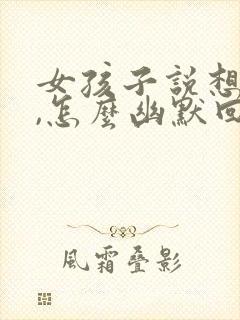 女孩子說想
,怎麼幽默回
風霜疊影